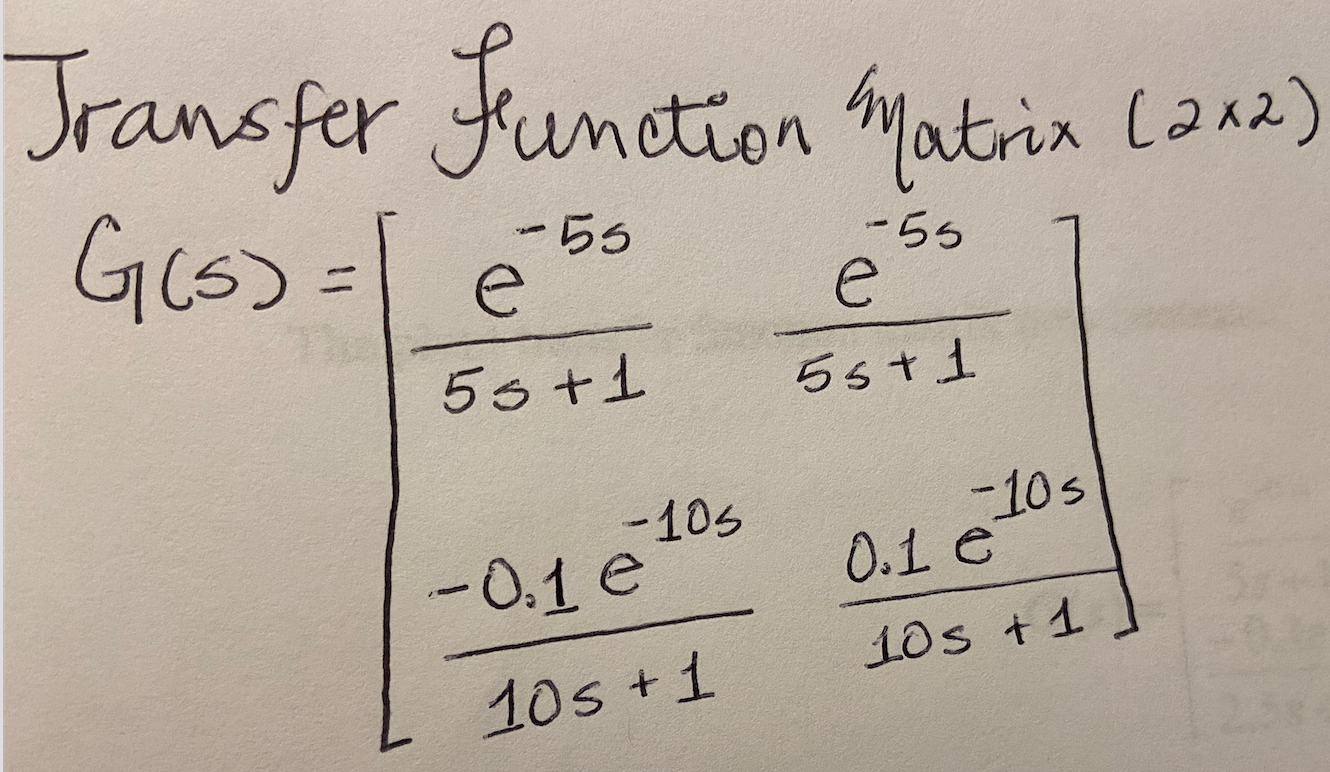 Transfer Function Matrix (2x2)
G(s) = [ e^{-5s}/(5s+1)  e^{-5s}/(5s+1)
-0.1 e^{-10s}/(10s+1)  0.1 e^{-10s}/(10s+1) ]